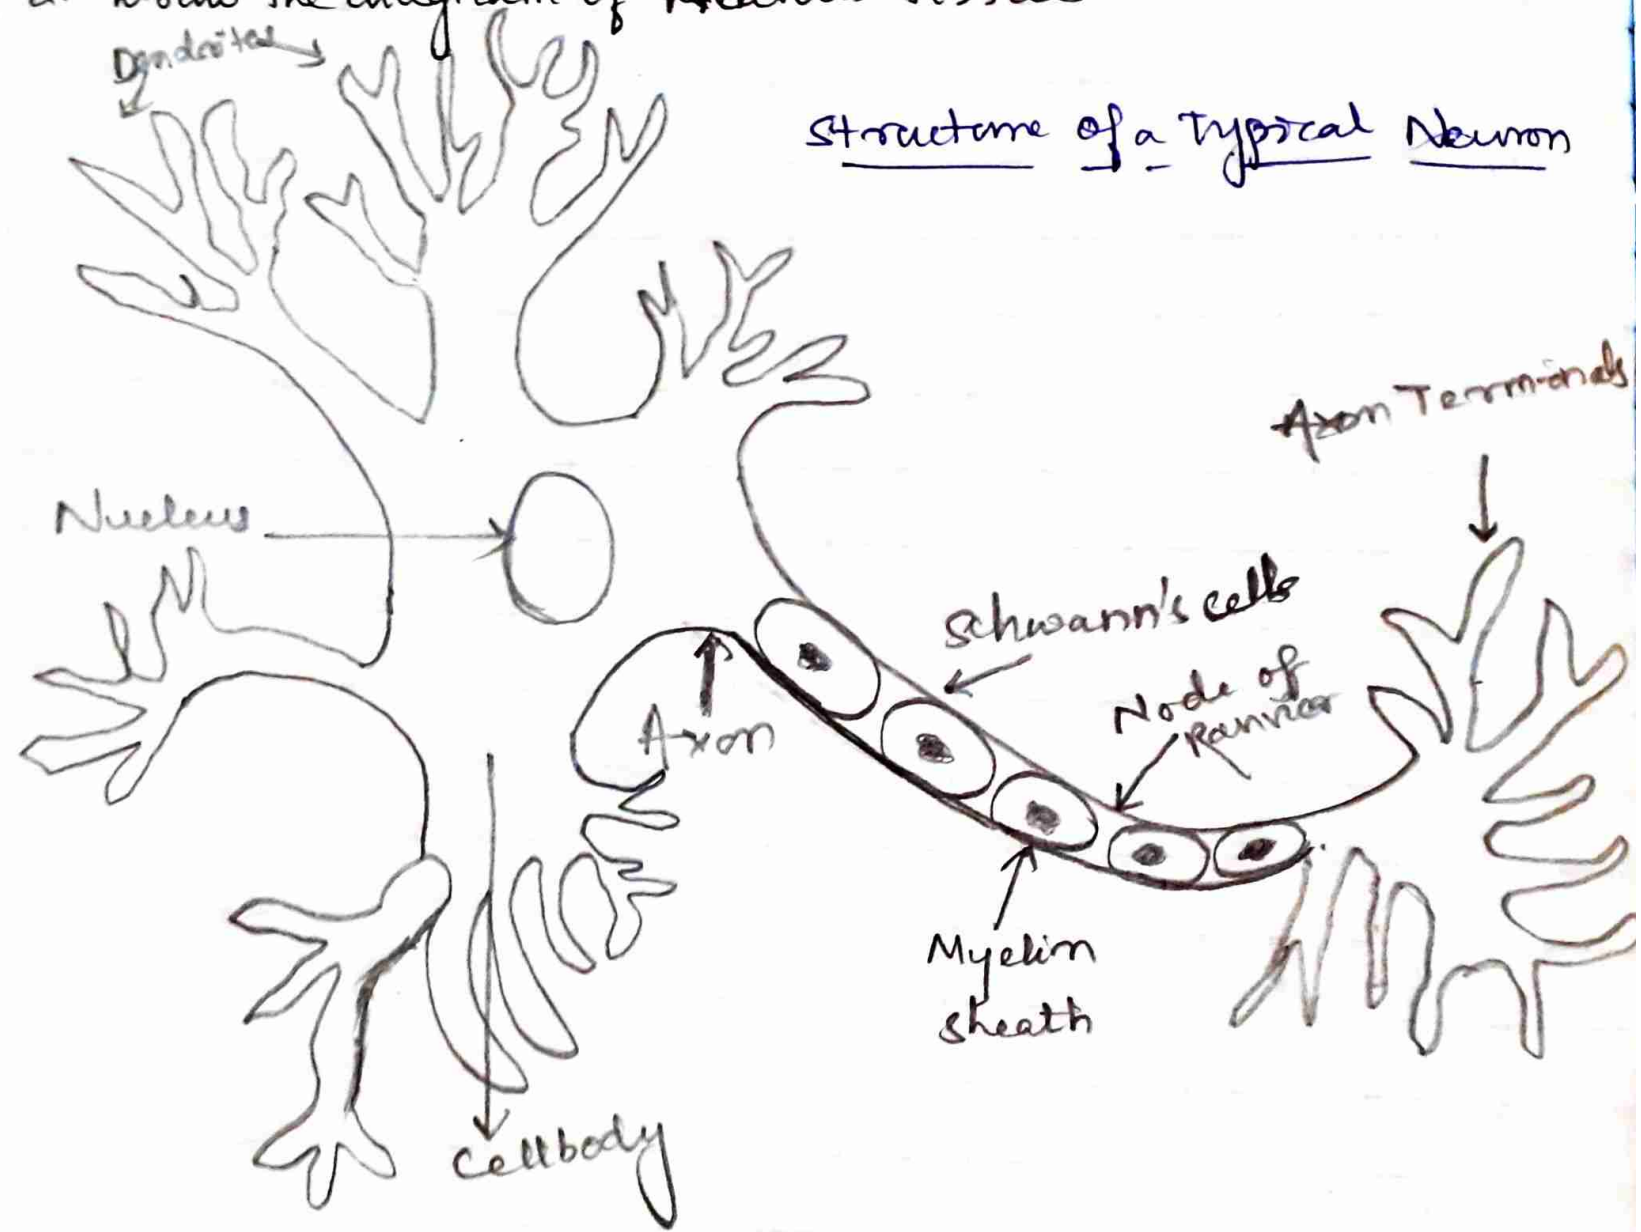 the diagram of
Dendrites
Structure of a Typical Neuron
Axon Terminals
Nucleus
Schwann's cells
Node of
Ranvier
Axon
Myelin
sheath
Cellbody